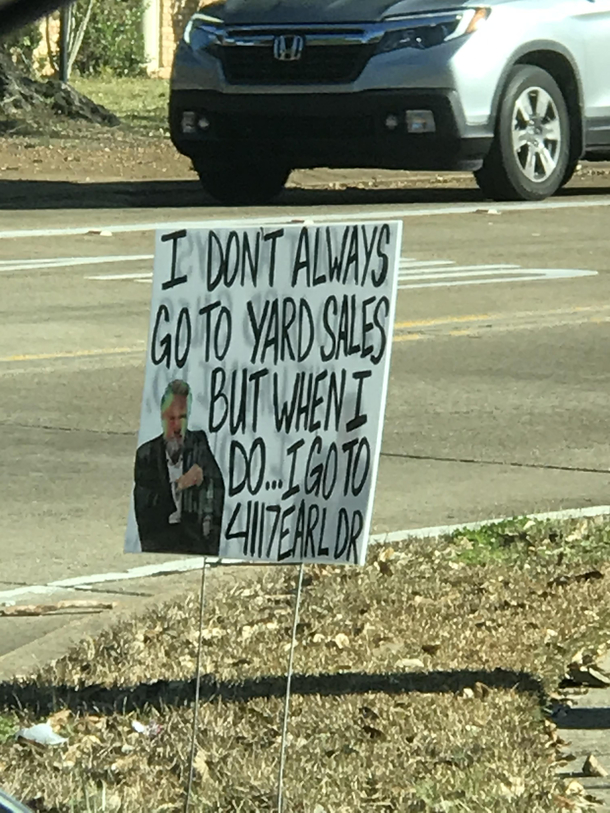 I DON'T ALWAYS
GO TO YARD SALES
BUT WHEN I
DO...I GO TO
4117 EARL DR